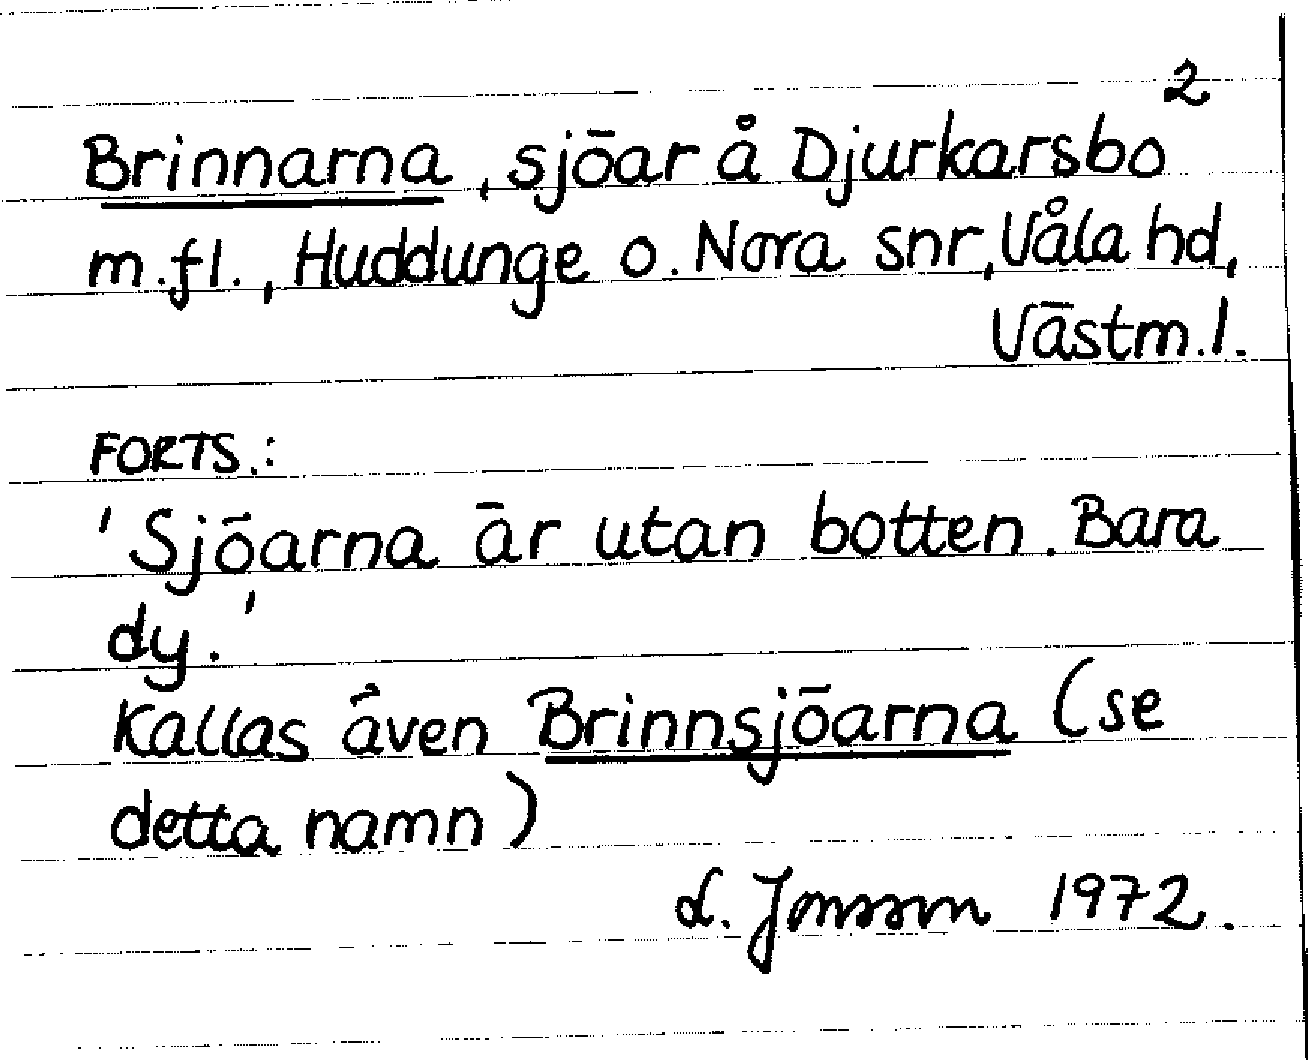 2
Brinnarna, sjöar å Djurkarsbo
m.fl., Huddunge o. Nora snr, Våla hd,
Västm.l.
FORTS.:
'Sjöarna är utan botten. Bara
dy.'
Kallas även Brinnsjöarna (se
detta namn)
L. Jonsson 1972.